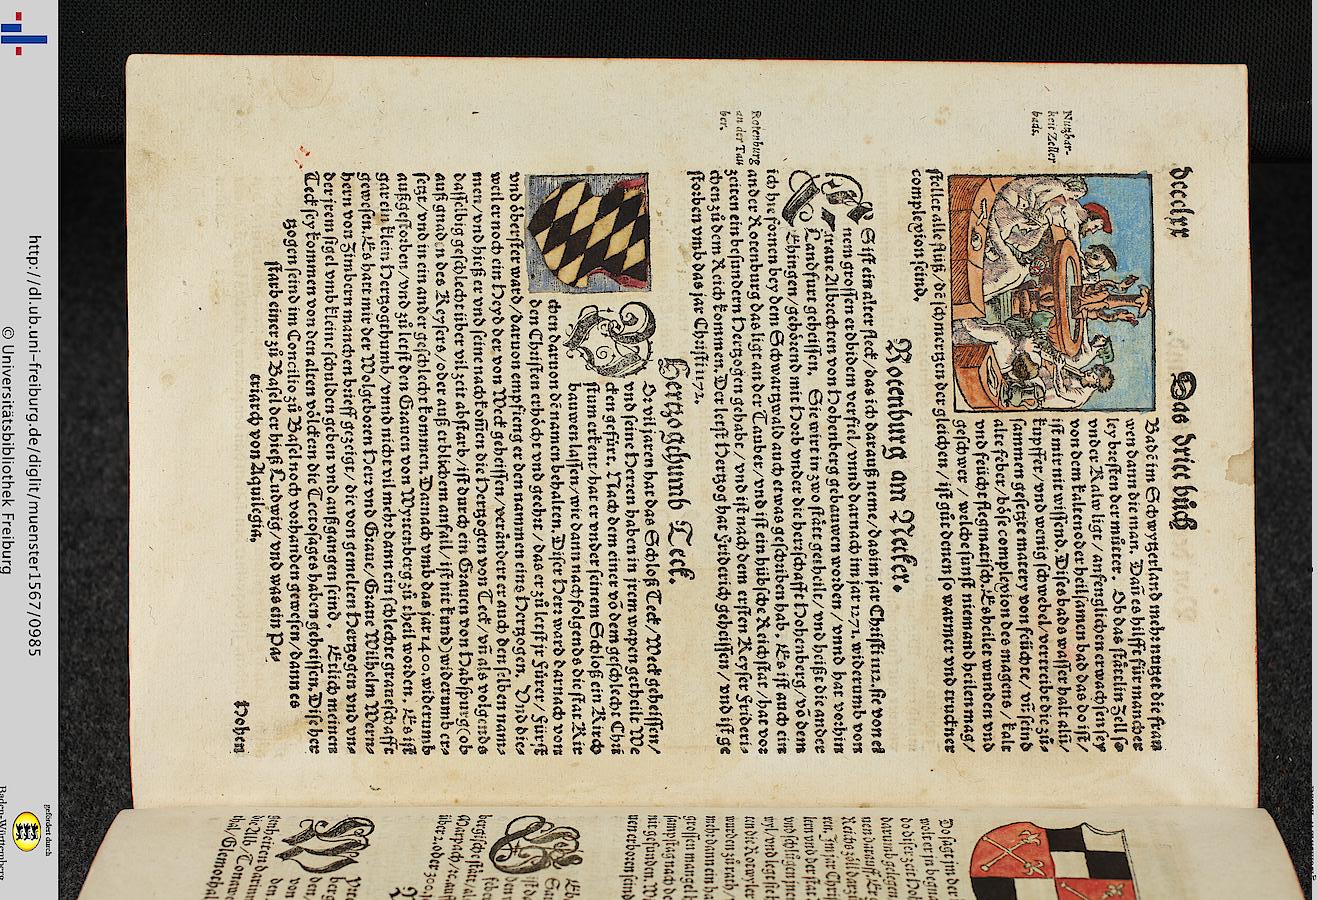 dcclxx
Das dritt büch
Nutzbar-
keit Zeller
bads.
Bade im Schwytzerland mehr nutzet die frau
wen dann die man. Dañ es hilfft für mancher
ley bresten der mütter. Ob das stättlin Zell so
vnder Kalw ligt / anfenglichen erwachsen sey
von dem kalten oder heilsamen bad das do ist /
ist mir nit wissend. Dises bads wasser halt alũ /
kupffer / vnd wenig schwebel / vertreibt die zů=
sammen gesetzte matery von feüchte / vñ seind
alte feber / böse complexion des magens / kalt
vnd feücht flegmatisch. Es heilet wunden vnd
geschwer / welche sunst niemand heilen mag /
stellet alle flüß / dẽ schmertzen der gleichen / ist gůt denen so warmer vnd truckner
complexion seind.
Rotenburg am Necker.
ES ist ein alter fleck / das ich darauß neme / das im jar Christi 1112. sie von ei
nem grossen erdbidem verfiel / vnnd darnach im jar 1271. widerumb von
Graue Albrechten von Hohenberg gebauwen worden / vnnd hat vorhin
Landsfurt geheissen. Sie wirt in zwo stätt getheilt / vnd heißt die ander
Ehingen / gehörend mit Horb vnder die herrschafft Hohenberg / võ dem
ich hie fornen bey dem Schwartzwald auch etwas geschriben hab. Es ist auch ein
ander Rotenburg das ligt an der Tauber / vnd ist ein hübsche Reichstat / hat vor
zeiten ein besundern Hertzogen gehabt / vnd ist nach dem ersten Keyser Frideri=
chen zů dem Reich kommen. Der letst Hertzog hat Friderich geheissen / vnd ist ge
storben vmb das jar Christi 1172.
Rotenburg
an der Tau
ber.
Hertzogthumb Teck.
Or vil jaren hat das Schloß Teck / Weck geheissen /
vnd seine Herren haben in jrem wapen getheilte We
cken gefürt. Nach dem einer vō dem geschlecht Chri
stum erkent / hat er vnder seinem Schloß ein Kirch
bauwen lassen / wie dann nachfolgends die stat Kir
chen daruon den namen behalten. Diser Herr ward darnach von
den Christen erhöcht vnd geehrt / das er zů letst jr Fürer / Fürst
vnd öberster ward / daruon empfieng er den nammen eins Hertzogen. Vnd die=
weil er noch ein Heyd der von Weck geheissen / verändert er auch den selben nam=
men / vnd hieß er vnd seine nachkomen die Hertzogen von Teck / vñ als volgends
dasselbig geschlecht über vil zeit abstarb / ist durch ein Grauen von Habspurg (ob
auß gnaden des Keysers / oder auß erblichem anfall / ist mir nit kund) widerumb er=
setzt / vnd in ein ander geschlecht kommen. Darnach vmb das jar 1400. widerumb
außgestorben / vnd zů letst den Grauen von Wirtenberg zů theil worden. Es ist
gar ein klein Hertzogthumb / vnnd nicht vil mehr dann ein schlechte graueschafft
gewesen. Es hatt mir der Wolgeboren Herr vnd Graue / Graue Wilhelm Wern=
herr von Zimbern manchen brieff gezeigt / die von gemelten Hertzogen vnd vn=
der jrem sigel vmb kleine schulden geben vnd außgangen seind. Etlich meinen
Teck sey kommen von den alten völckern die Tectosages haben geheissen. Dise her
tzogen seind im Concilio zů Basel noch vorhanden gewesen / dann es
starb einer zů Basel der hieß Ludwig / vnd was ein Pa=
triarch von Aquilegia.
Hohen
http://dl.ub.uni-freiburg.de/diglit/muenster1567/0985
© Universitätsbibliothek Freiburg
gefördert durch